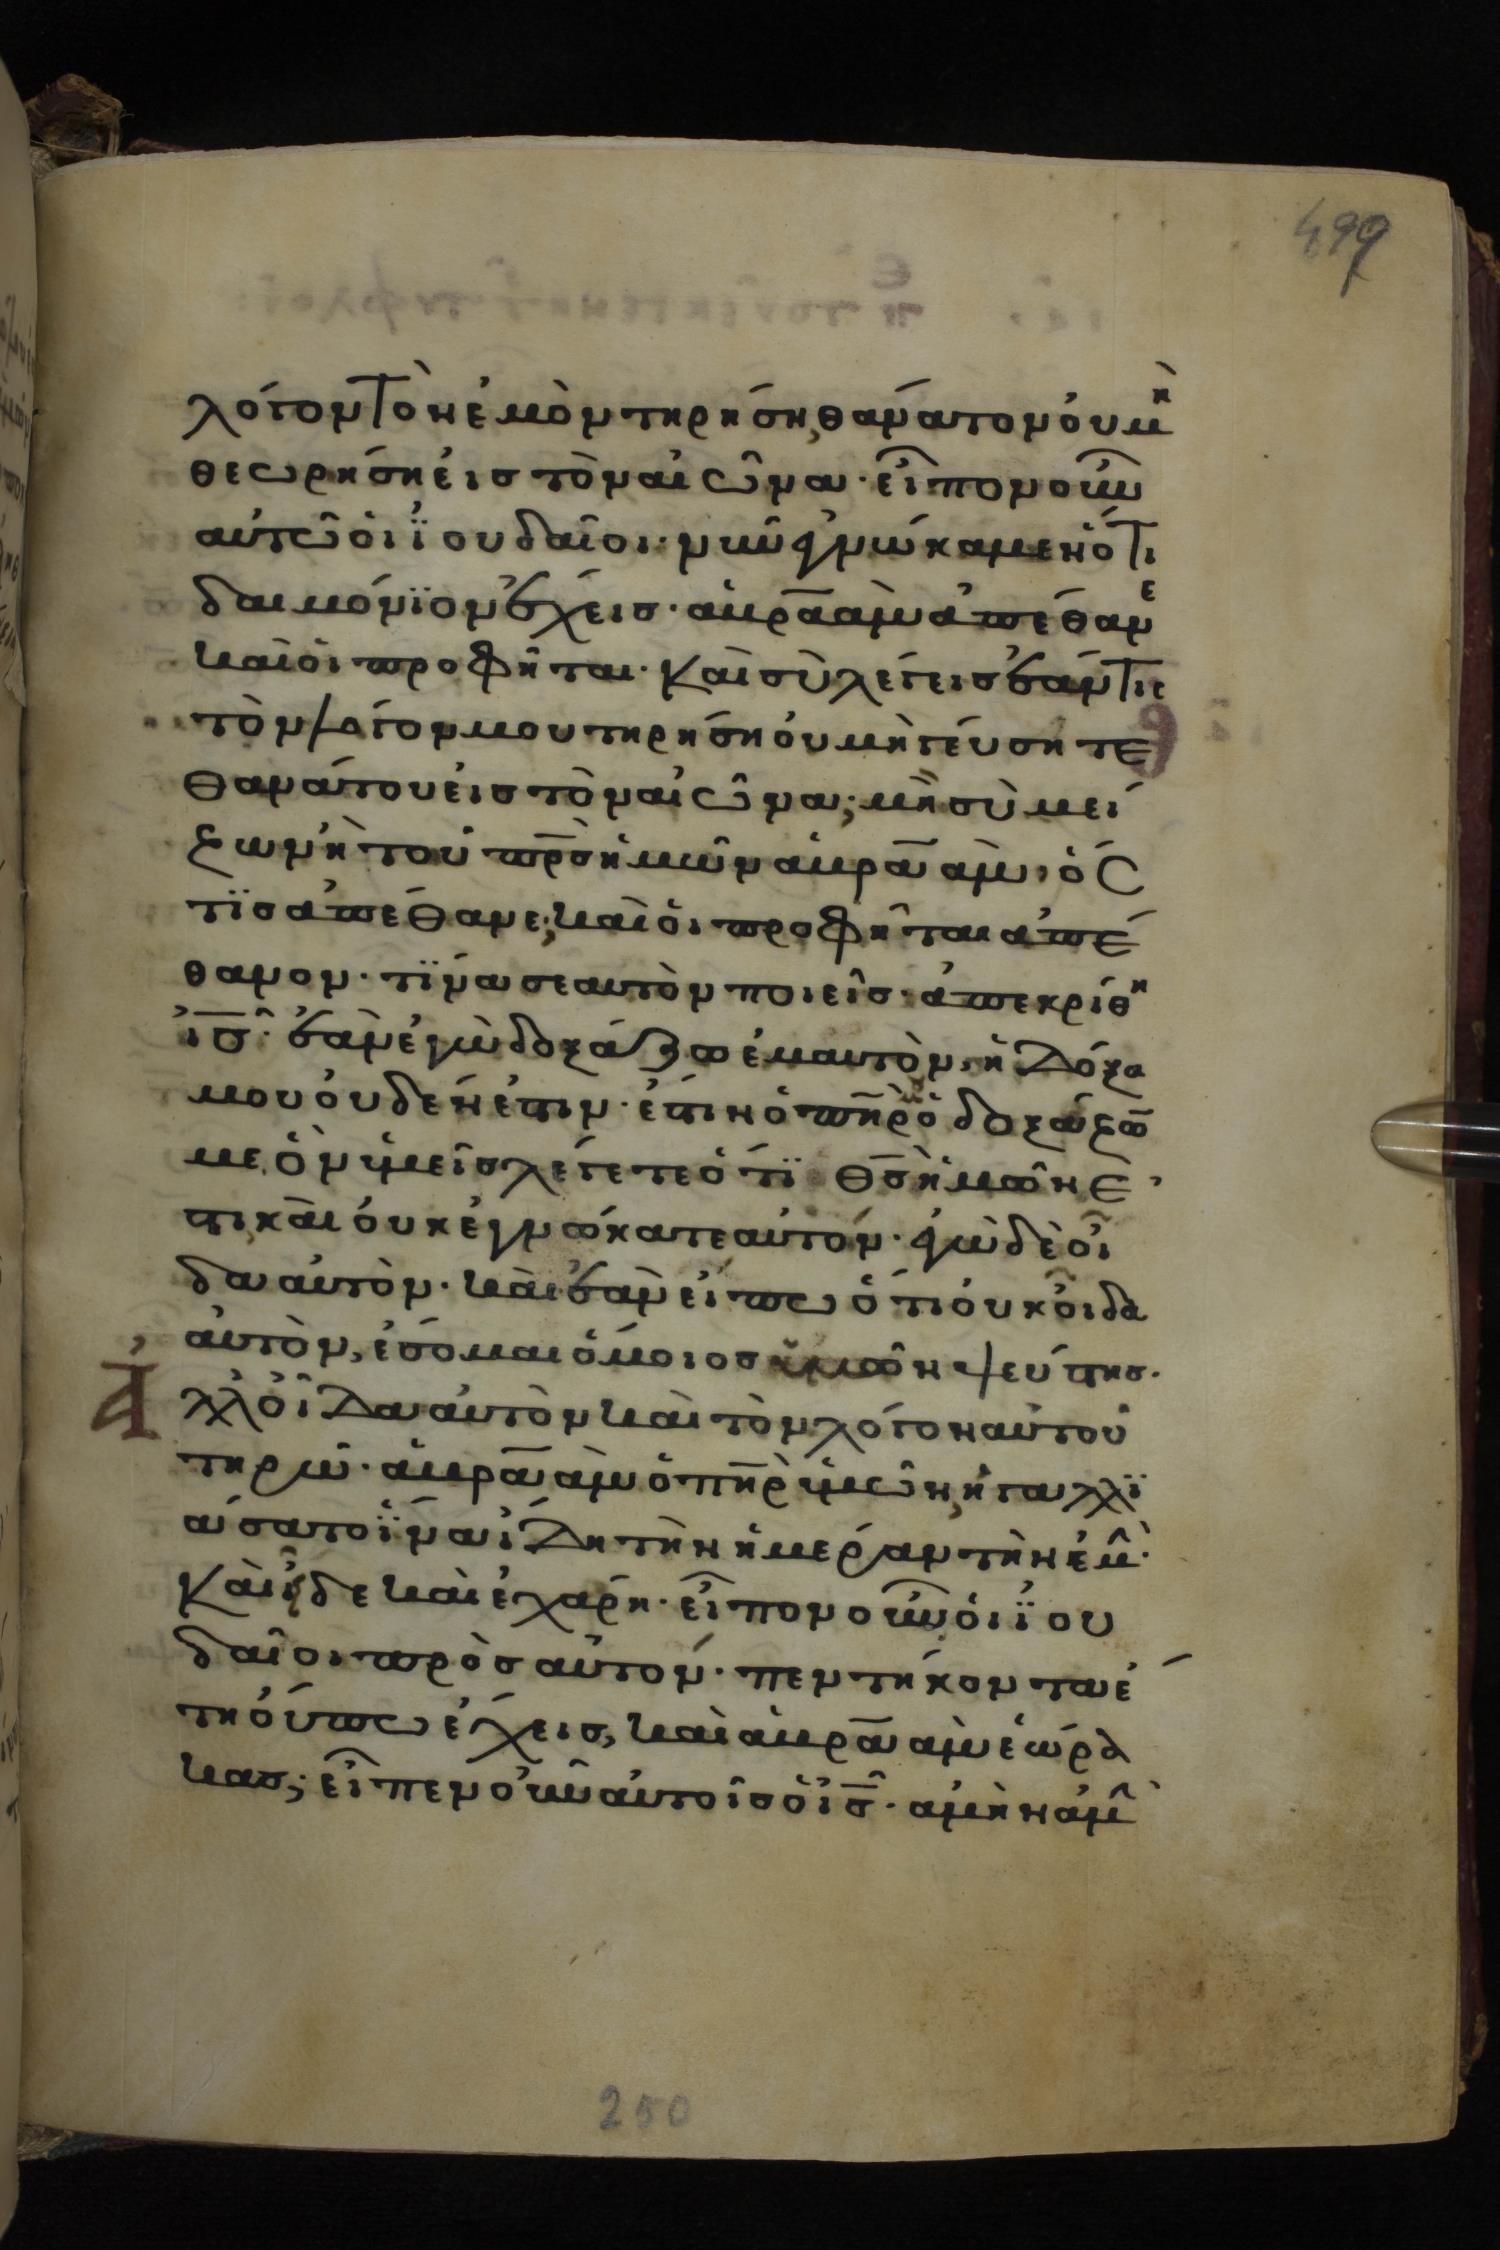 499
λόγον τὸν ἐμὸν τηρήση, θάνατον ὀυ μὴ
θεωρήση ἐις τὸν αἰῶνα · εἶπον οὖν
αὐτῶ ὁι ϊουδαῖοι · νῦν ἐγνώκαμεν ὅτι
δαιμόνϊον ἔχεις · ἀβραὰμ ἀπέθανε
καὶ ὁι προφῆται · καὶ σὺ λέγεις ἐάν τις
τὸν λόγον μου τηρήση ὀυ μὴ γεύσηται
θανάτου εἰς τὸν αἰῶνα; μὴ σὺ μεί
ζων ἦ τοῦ πρ̅ς ἡμῶν ἀβραὰμ, ὅς
τϊς ἀπέθανε; καὶ ὁι προφῆται ἀπέ
θανον · τϊνα σεαυτὸν ποιεῖς · ἀπεκρίθη
ι̅ς · ἐὰν ἐγὼ δοξάζω ἐμαυτὸν, ἡ δόξα
μου ὀυδέν ἐστιν · ἔστιν ὁ πη̅ρ ὁ δοξάζων
με, ὃν ὑμεῖς λέγετε ὅτϊ θ̅ς ἡμῶν ἐ
στι, καὶ ὀυκ ἐγνώκατε αὐτόν · ἐγὼ δὲ οἶ
δα αὐτὸν · καὶ ἐὰν εἴπω ὅτι ὀυκ ὀιδα
ἀυτὸν, ἔσομαι ὅμοιος ὑμῶν ψεύστης ·
Ἀ
λλ ὀῖδα αὐτὸν καὶ τὸν λόγον αὐτοῦ
τηρῶ · ἀβραὰμ ὁ πη̅ρ ὑμῶν, ἠγαλλϊ
άσατο ΐνα ἴδη τὴν ἡμέραν τὴν ἐμὴ ·
καὶ ἶδε καὶ ἐχάρη · εἶπον οὖν ὁι ϊου
δαῖοι πρὸς αὐτόν · πεντήκοντα ἔ
τη ὄυπω ἔχεις, καὶ ἀβραὰμ ἑώρα
κας; εἶπεν ὀῦν ἀυτοῖς ὁ ι̅ς · ἀμὴν ἀμὴ
250